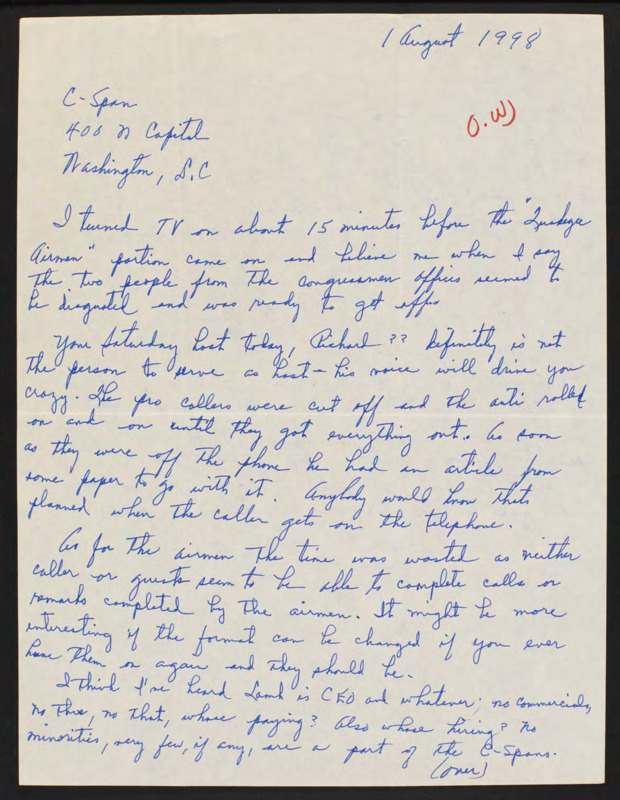 1 August 1998
C-Span
400 N Capitol
Washington, D.C
O.W)
I turned TV on about 15 minutes before the "Tuskegee
Airmen" portion came on and believe me when I say
the two people from the congressmen offices seemed to
be disgusted and was ready to get off.
Your Saturday host today, Richard ?? definitely is not
the person to serve as host - his voice will drive you
crazy. The pro callers were cut off and the anti rolled
on and on until they got everything out. As soon
as they were off the phone he had an article from
some paper to go with it. Anybody would know thats
planned when the caller gets on the telephone.
As for the airmen the time was wasted as neither
caller or guests seem to be able to complete calls or
remarks completed by the airmen. It might be more
interesting if the format can be changed if you ever
have them on again and they should be.
I think I've heard Lamb is CEO and whatever; no commercials,
no this, no that, whose paying? Also whose hiring? No
minorities, very few, if any, are a part of the C-Spans.
(over)